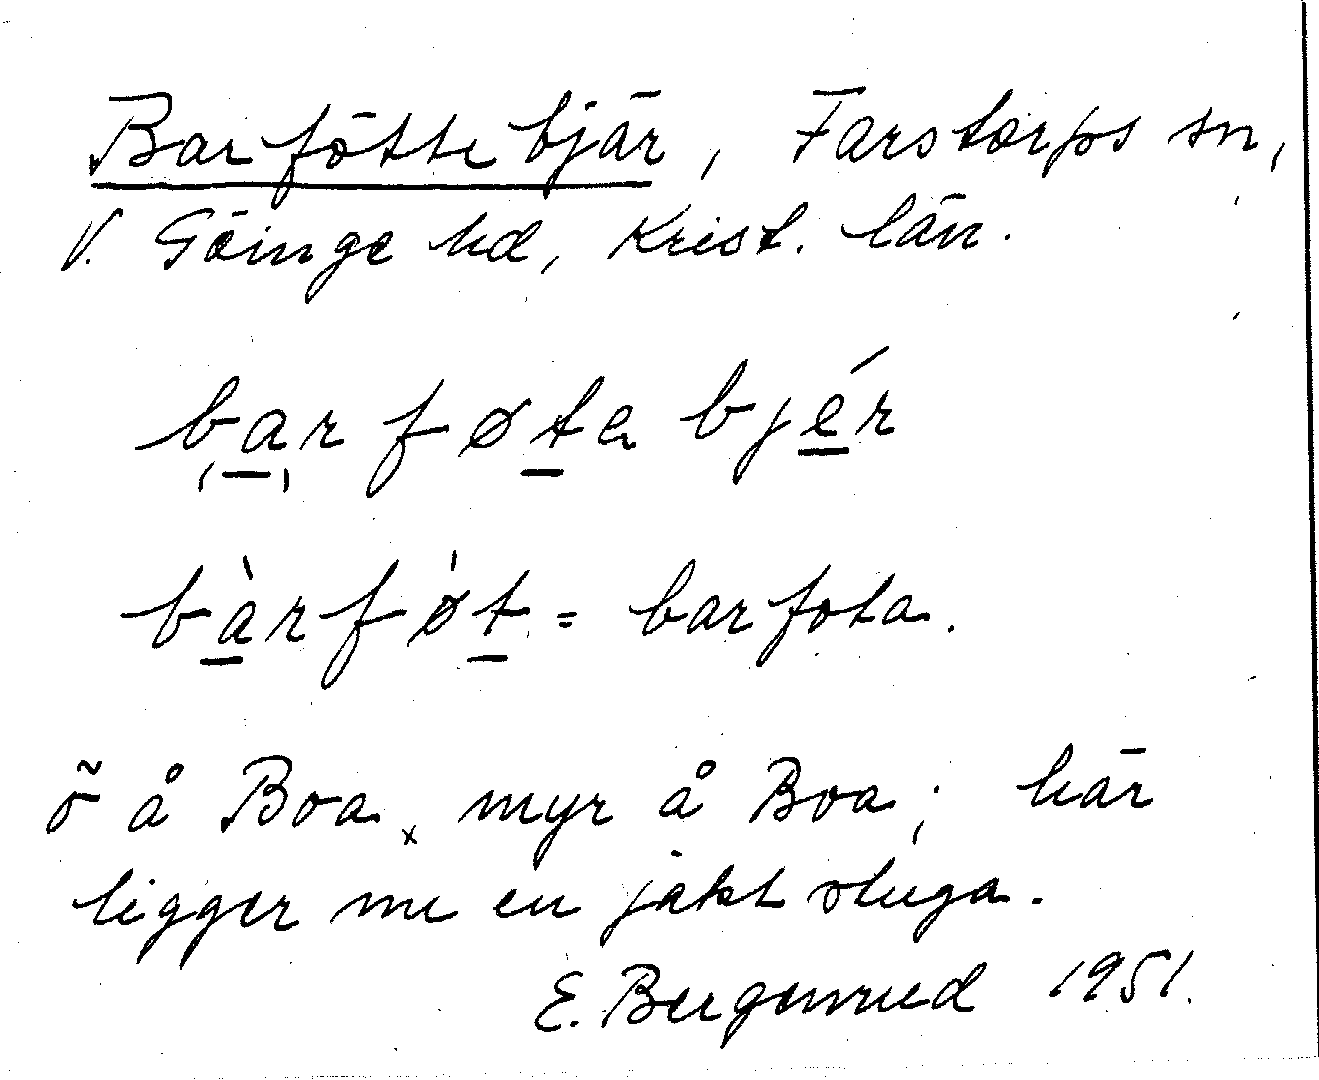 Barföttebjär, Farstorps sn,
V. Göinge hd, Krist. län.
barføta bjér
bàrfø̀t = barfota.
ö å Boa, myr å Boa; här
ligger nu en jaktstuga.
E. Bergenrud 1951.